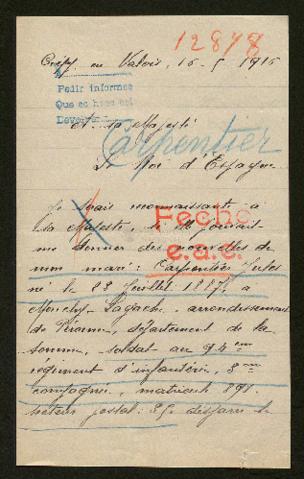 12878
Crépy en Valois, 16-5 1916
Pedir informes
Que es
Devolver
A sa Majesté
Carpentier
Le Roi d'Espagne
Je serais reconnaissante à
sa Majesté, si elle pouvait
Fecho
me donner des nouvelles de
e.a.c.
mon mari: Carpentier Jules
né le 23 Juillet 1887 à
Monchy-Lagache, arrondissement
de Péronne, département de la
Somme, soldat au 94em
régiment d'infanterie, 3me
compagnie, matricule 891
secteur postal: disparu le